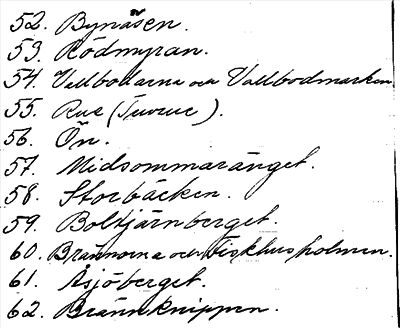 52. Bynäsen.
53. Rödmyran.
54. Vallbodarna och Vallbodmarken
55. Rue (Tuvrue).
56. Ön.
57. Midsommaränget.
58. Storbäcken.
59. Boltjärnberget.
60. Brännorna och Fiskhusholmen.
61. Åsjöberget.
62. Brännknippen.